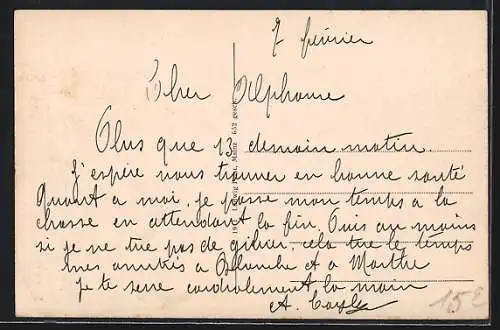 7 février
Cher Alphonse
Plus que 13 demain matin.
J'espère vous trouver en bonne santé
Quant a moi, je passe mon temps a la
chasse en attendant la fin. Puis au moins
si je ne tue pas de gibier, cela tue le temps
mes amitiés a Blanche et a Marthe
je te serre cordialement la main
A.
Mainz 652 gesch.
15E